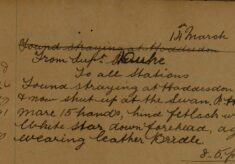 1st March
Found straying at Hoddesdon
From Supt.
To all Stations
Found straying at Hoddesdon
& now shut up at the Swan,
Mare 15 hands, hind fetlock
White Star down forehead,
wearing leather Bridle